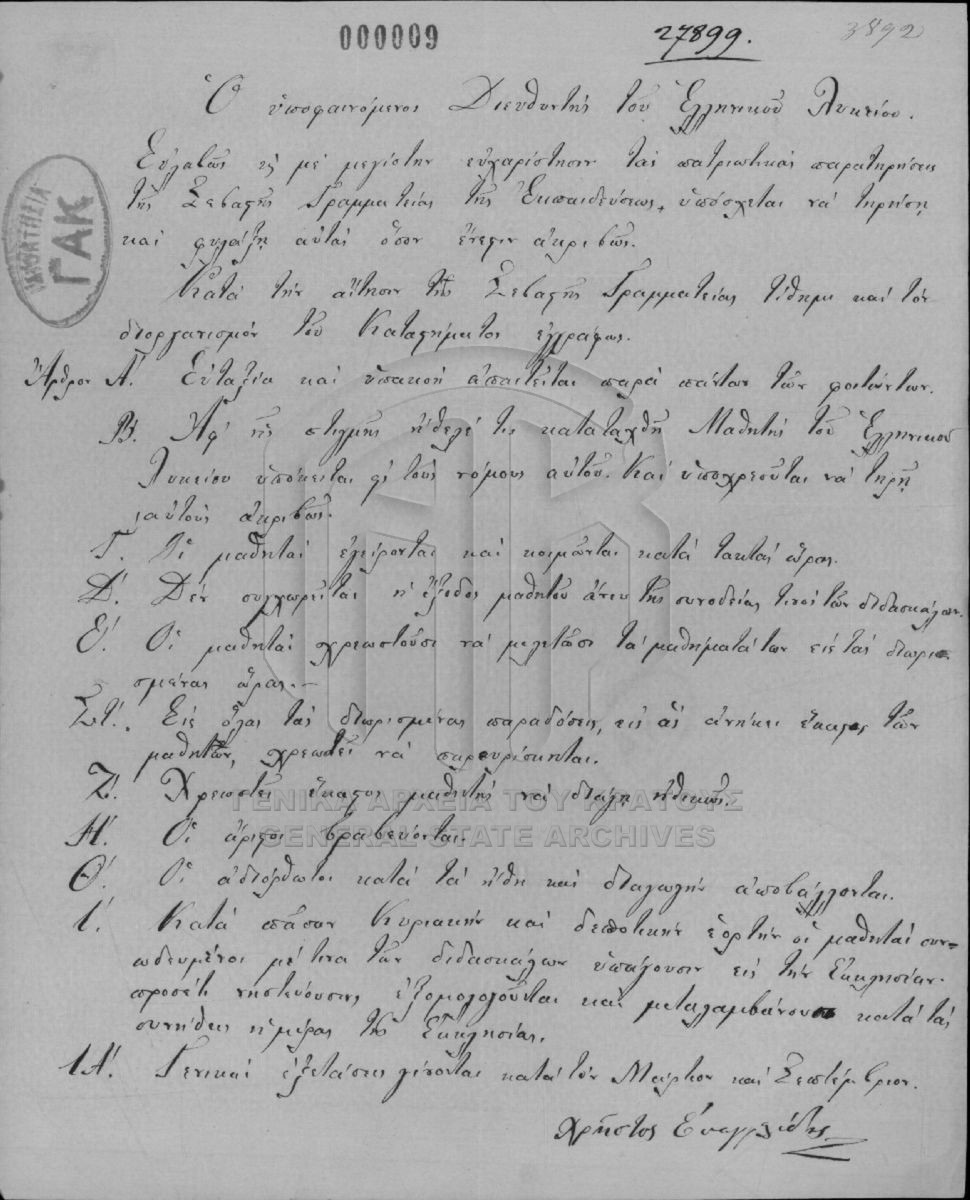 000009 27899. 3892
Ὁ ὑποφαινόμενος Διευθυντής τοῦ Ἑλληνικοῦ Λυκείου.
Εὐλαβῶς μέ μεγίστην εὐχαρίστησιν τάς πατριωτικάς παρατηρήσεις
τῆς Σεβαστῆς Γραμματείας τῆς Ἐκπαιδεύσεως, ὑπόσχεται νά τηρήσῃ
καί φυλάξῃ αὐτάς ὅσον ἔνεστιν ἀκριβῶς.
Κατά τήν αἴτησιν τῆς Σεβαστῆς Γραμματείας τίθημι καί τόν
διοργανισμόν τοῦ Καταστήματος ἐγγράφως.
Ἄρθρον Α΄. Εὐταξία καί ὑπακοή ἀπαιτεῖται παρά πάντων τῶν φοιτώντων.
Β΄. Ἀφ' ἧς στιγμῆς ἤθελέ τις καταταχθῆ Μαθητής τοῦ Ἑλληνικοῦ
Λυκείου ὑπόκειται εἰς τούς νόμους αὐτοῦ. Καί ὑποχρεοῦται νά τηρῇ
αὐτούς ἀκριβῶς.
Γ΄. Οἱ μαθηταί ἐγείρονται καί κοιμῶνται κατά τακτάς ὥρας.
Δ΄. Δέν συγχωρεῖται ἡ ἔξοδος μαθητοῦ ἄνευ τῆς συνοδείας τινός τῶν διδασκάλων.
Ε΄. Οἱ μαθηταί χρεωστοῦσι νά μελετῶσι τά μαθήματά των εἰς τάς διωρι=
σμένας ὥρας.—
ΣΤ΄. Εἰς ὅλας τάς διωρισμένας παραδόσεις, εἰς ἅς ἀνήκει ἕκαστος τῶν
μαθητῶν, χρεωστεῖ νά παρευρίσκηται.
Ζ΄. Χρεωστεῖ ἕκαστος μαθητής νά διάγῃ ἠθικῶς.
ΓΕΝΙΚΑ ΑΡΧΕΙΑ ΤΟΥ ΚΡΑΤΟΥΣ
Η΄. Οἱ ἄριστοι βραβεύονται.
GENERAL STATE ARCHIVES
Θ΄. Οἱ ἀδιόρθωτοι κατά τά ἤθη καί διαγωγήν ἀποβάλλονται.
Ι΄. Κατά πᾶσαν Κυριακήν καί δεσποτικήν ἑορτήν οἱ μαθηταί συν=
ωδευμένοι μέ τινα τῶν διδασκάλων ὑπάγουσιν εἰς τήν Ἐκκλησίαν.
προσέτι νηστεύουσιν, ἐξομολογοῦνται καί μεταλαμβάνουσι κατά τάς
συνήθεις ἡμέρας τῆς Ἐκκλησίας.
ΙΑ΄. Γενικαί ἐξετάσεις γίνονται κατά τόν Μάρτιον καί Σεπτέμβριον.
Χρῆστος Εὐαγγελίδης
ΓΑΚ